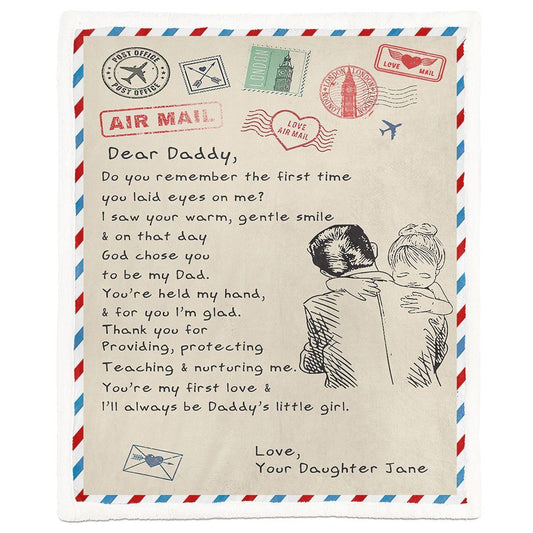 POST OFFICE
POST OFFICE
LONDON
LONDON LONDON
LOVE MAIL
AIR MAIL
LOVE
AIR MAIL
Dear Daddy,
Do you remember the first time
you laid eyes on me?
I saw your warm, gentle smile
& on that day
God chose you
to be my Dad.
You're held my hand,
& for you I'm glad.
Thank you for
Providing, protecting
Teaching & nurturing me.
You're my first love &
I'll always be Daddy's little girl.
Love,
Your Daughter Jane